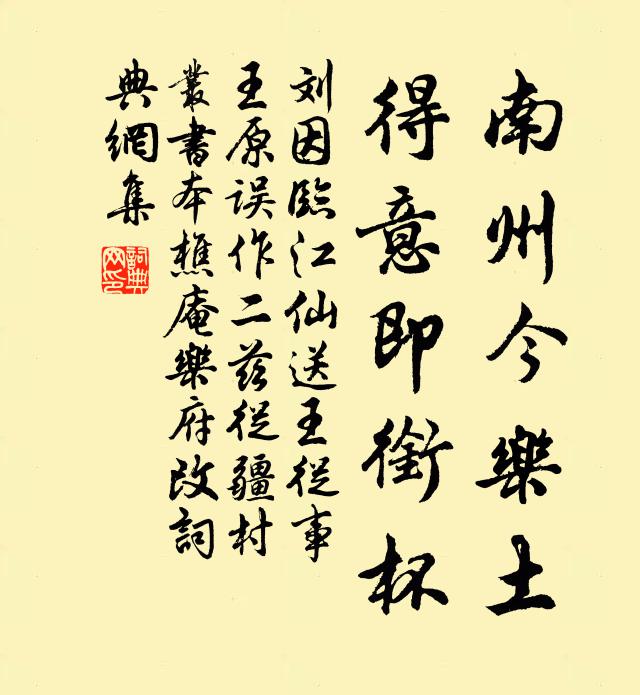 南州今樂土
得意即銜杯
刘因臨江仙送王從事
王原误作二茲從疆村
叢書本樵庵樂府改詞
典網集
詞典
网印